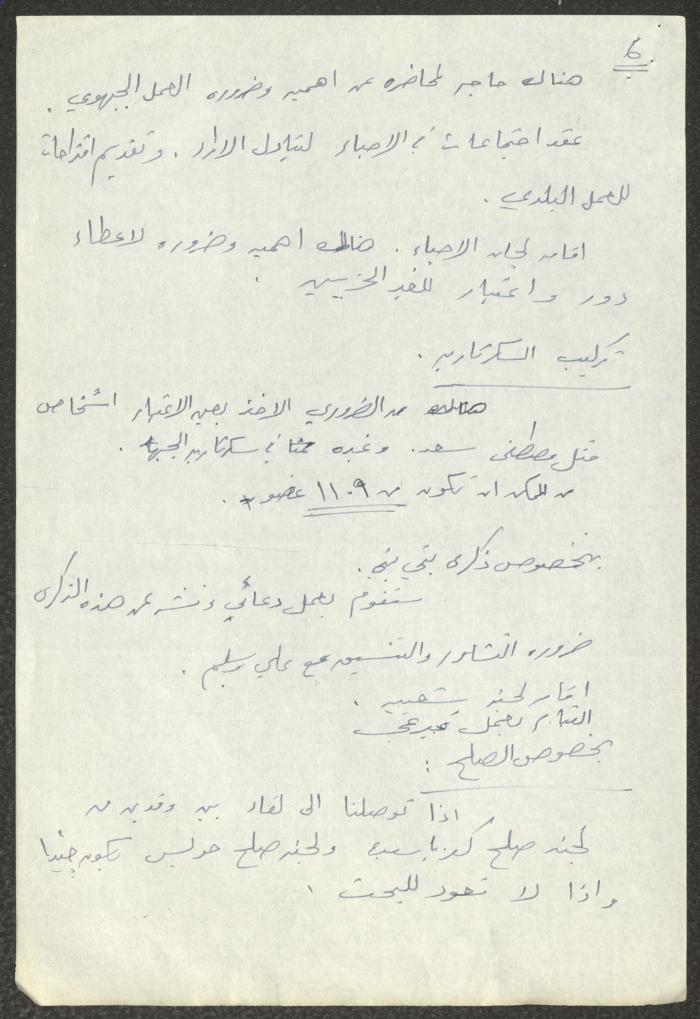 6
هناك حاجه لمحاضره عن اهميه وضروره العمل الجبهوي .
عقد اجتماعات في الاحياء لتبادل الاراء . وتقديم اقتراحات
للعمل البلدي .
اقامه لجان الاحياء . هناك اهميه وضروره لاعطاء
دور واعتبار للغير الحزبيين .
تركيب السكرتاريه .
هناك من الضروري الاخذ بعين الاعتبار اشخاص
مثل مصطفى سعد . وغيره في سكرتارية الجبهه .
من الممكن ان تكون من ٩-١١ عضو .
بخصوص ذكرى
ستقوم بعمل دعائي ونشره عن هذه الذكرى
ضروره التشاور والتنسيق مع علي وسليم .
اقامه لجنه شعبيه .
القيام بعمل
بخصوص الصلح :
اذا توصلنا الى لقاء بين وفدين من
لجنه صلح كفرياسيف ولجنه صلح جولس تكون جيدا
واذا لا نعود للبحث .